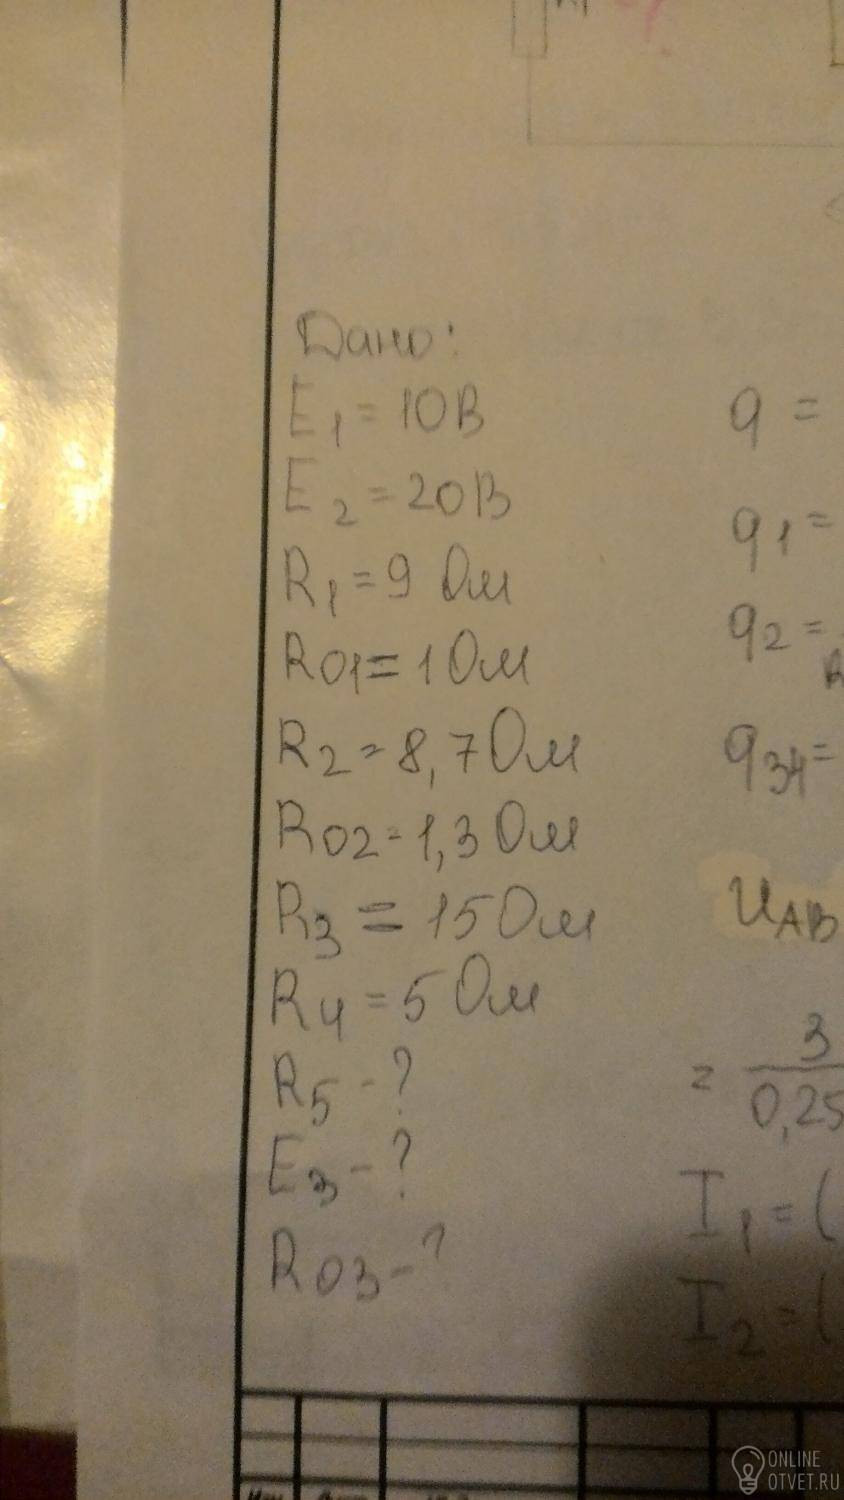 Дано:
E1 = 10В
E2 = 20В
R1 = 9 Ом
R01 = 1 Ом
R2 = 8,7 Ом
R02 = 1,3 Ом
R3 = 15 Ом
R4 = 5 Ом
R5 - ?
E3 - ?
R03 - ?
q =
q1 =
q2 =
q34 =
UAB
= 3
0,25
I1 = (
I2 = (
ONLINE
OTVET.RU